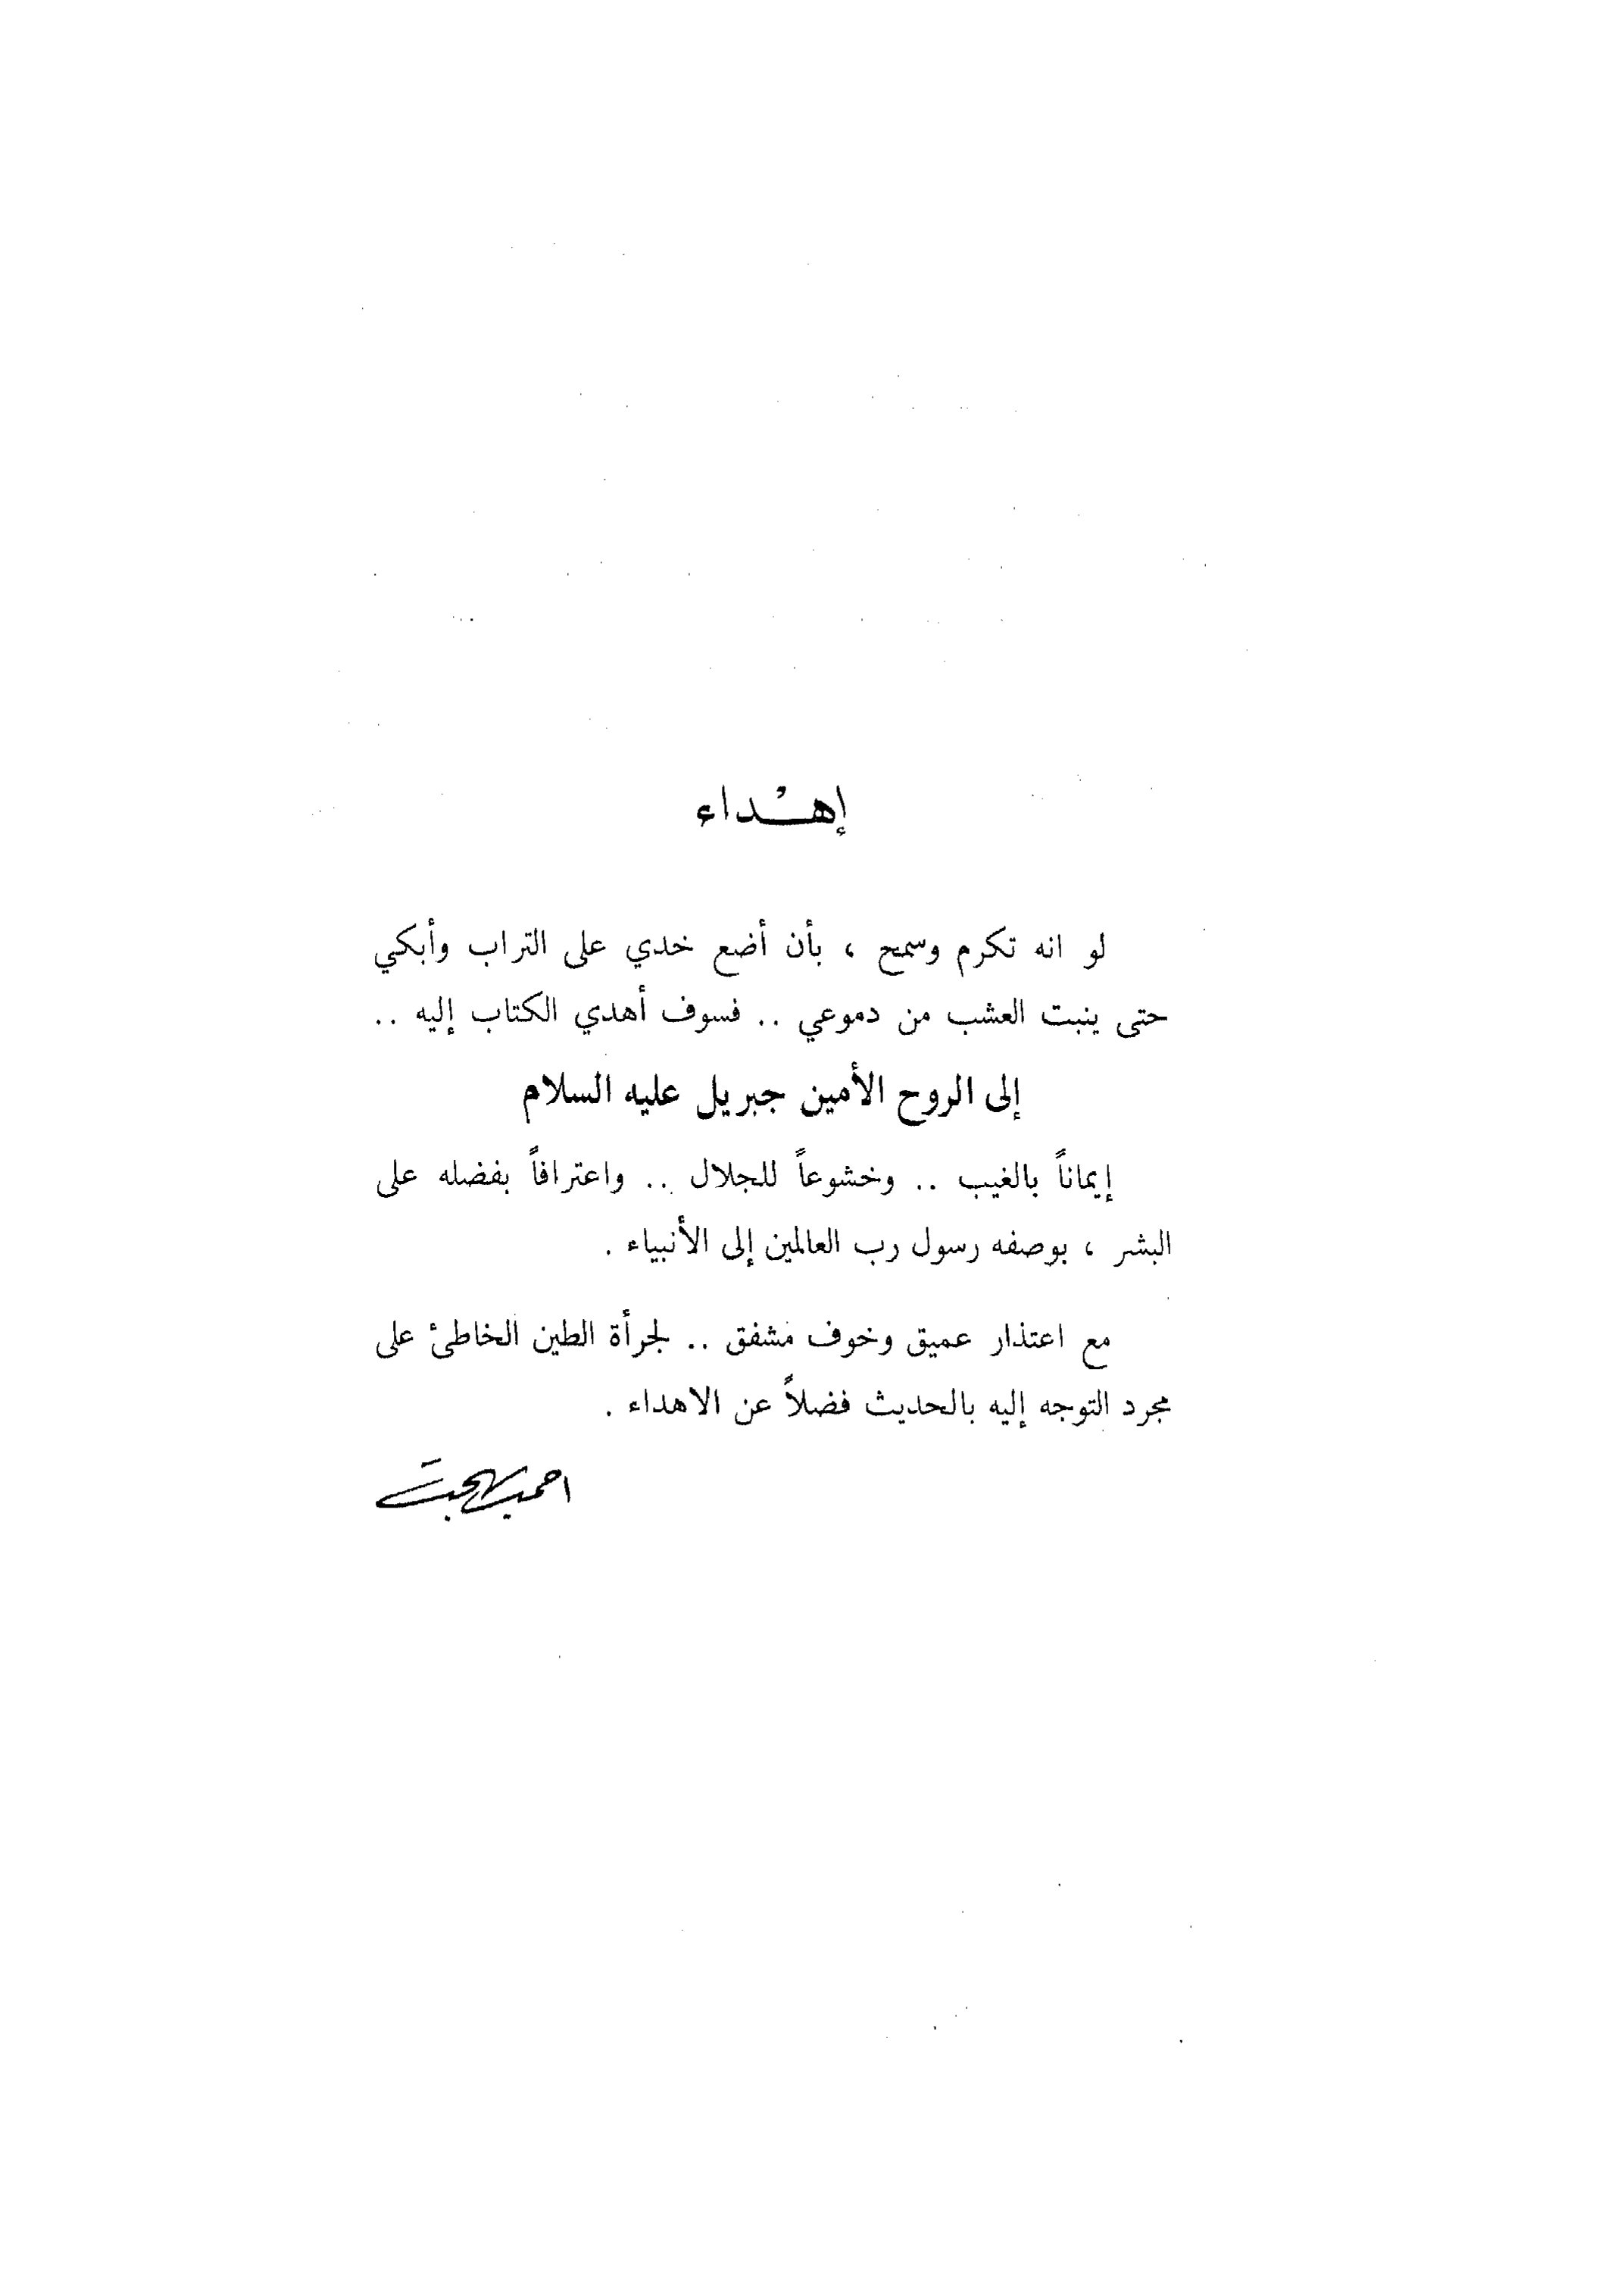 إهْـداء
لو انه تكرم وسمح ، بأن أضع خدي على التراب وأبكي
حتى ينبت العشب من دموعي .. فسوف أهدي الكتاب إليه ..
إلى الروح الأمين جبريل عليه السلام
إيماناً بالغيب .. وخشوعاً للجلال .. واعترافاً بفضله على
البشر ، بوصفه رسول رب العالمين إلى الأنبياء .
مع اعتذار عميق وخوف مشفق .. لجرأة الطين الخاطئ على
مجرد التوجه إليه بالحديث فضلاً عن الاهداء .
احمد بهجت